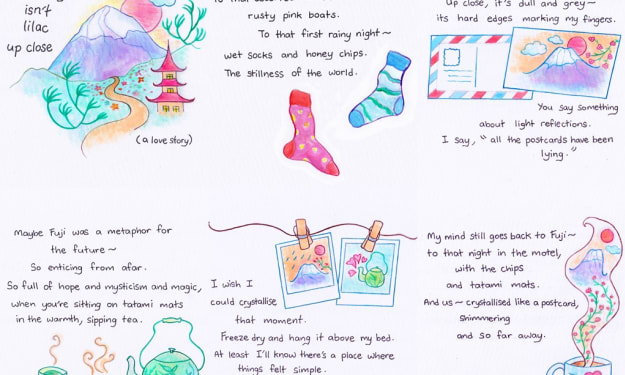 isn't
lilac
up close
(a love story)
rusty pink boats.
To that first rainy night~
wet socks and honey chips.
The stillness of the world.
up close, it's dull and grey~
its hard edges marking my fingers.
You say something
about light reflections.
I say, "all the postcards have been
lying."
Maybe Fuji was a metaphor for
the future~
So enticing from afar.
So full of hope and mysticism and magic,
when you're sitting on tatami mats
in the warmth, sipping tea.
I wish I
could crystallise
that moment.
Freeze dry and hang it above my bed.
At least I'll know there's a place where
things felt simple.
My mind still goes back to Fuji~
to that night in the motel,
with the chips
and tatami mats.
And us~ crystallised like a postcard,
shimmering
and so far away.